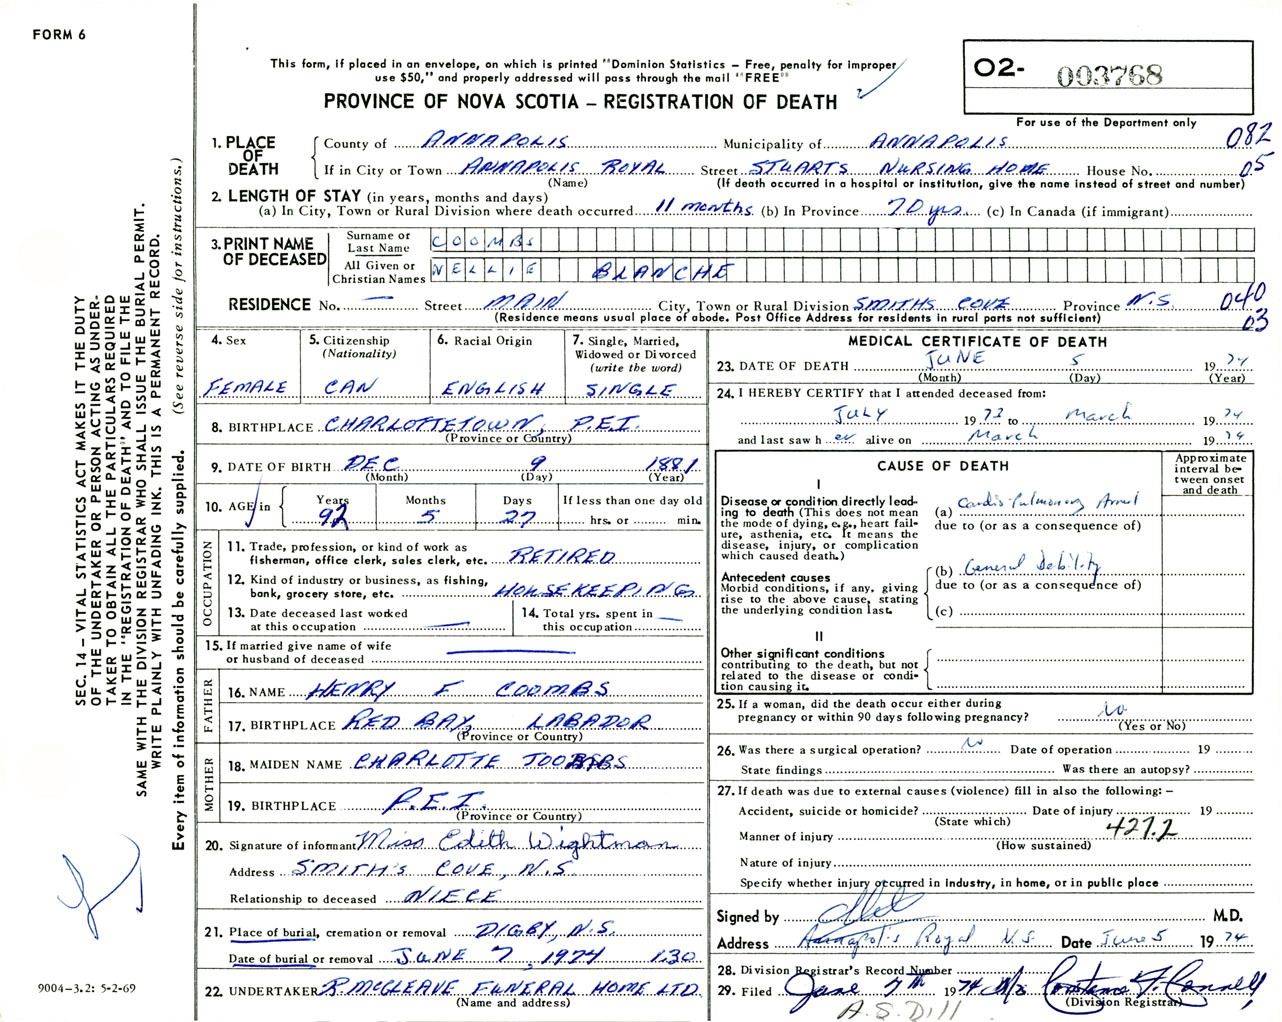 FORM 6
This form, if placed in an envelope, on which is printed "Dominion Statistics – Free, penalty for improper
use $50," and properly addressed will pass through the mail "FREE"
PROVINCE OF NOVA SCOTIA – REGISTRATION OF DEATH
02- 003768
For use of the Department only
1. PLACE OF DEATH County of ANNAPOLIS Municipality of ANNAPOLIS 082
If in City or Town ANNAPOLIS ROYAL Street STUARTS NURSING HOME House No. 05
(Name) (If death occurred in a hospital or institution, give the name instead of street and number)
2. LENGTH OF STAY (in years, months and days)
(a) In City, Town or Rural Division where death occurred 11 months (b) In Province 70 yrs. (c) In Canada (if immigrant)
3. PRINT NAME OF DECEASED
Surname or Last Name COOMBS
All Given or Christian Names NELLIE BLANCHE
RESIDENCE No. — Street MAIN City, Town or Rural Division SMITHS COVE Province N.S. 040
(Residence means usual place of abode. Post Office Address for residents in rural parts not sufficient) 03
4. Sex FEMALE
5. Citizenship (Nationality) CAN
6. Racial Origin ENGLISH
7. Single, Married, Widowed or Divorced (write the word) SINGLE
8. BIRTHPLACE CHARLOTTETOWN, P.E.I.
(Province or Country)
9. DATE OF BIRTH DEC 9 1881
(Month) (Day) (Year)
10. AGE in Years 92 Months 5 Days 27 If less than one day old
hrs. or min.
OCCUPATION
11. Trade, profession, or kind of work as
fisherman, office clerk, sales clerk, etc. RETIRED
12. Kind of industry or business, as fishing,
bank, grocery store, etc. HOUSEKEEPING
13. Date deceased last worked
at this occupation —
14. Total yrs. spent in
this occupation —
15. If married give name of wife
or husband of deceased —
FATHER
16. NAME HENRY F COOMBS
17. BIRTHPLACE RED BAY, LABADOR
(Province or Country)
MOTHER
18. MAIDEN NAME CHARLOTTE TOOMBS
19. BIRTHPLACE P.E.I.
(Province or Country)
20. Signature of informant Miss Edith Wightman
Address SMITH'S COVE, N.S.
Relationship to deceased NIECE
21. Place of burial, cremation or removal DIGBY, N.S.
Date of burial or removal JUNE 7, 1974 1:30
22. UNDERTAKER R McCLEAVE FUNERAL HOME LTD.
(Name and address)
MEDICAL CERTIFICATE OF DEATH
23. DATE OF DEATH JUNE 5 1974
(Month) (Day) (Year)
24. I HEREBY CERTIFY that I attended deceased from:
JULY 1973 to March 1974
and last saw her alive on March 1974
CAUSE OF DEATH
Approximate interval between onset and death
I
Disease or condition directly lead-
ing to death (This does not mean
the mode of dying, e.g., heart fail-
ure, asthenia, etc. It means the
disease, injury, or complication
which caused death.)
(a) Cardio-Pulmonary Arrest
due to (or as a consequence of)
Antecedent causes
Morbid conditions, if any, giving
rise to the above cause, stating
the underlying condition last.
(b) General Debility
due to (or as a consequence of)
(c)
II
Other significant conditions
contributing to the death, but not
related to the disease or condi-
tion causing it.
25. If a woman, did the death occur either during
pregnancy or within 90 days following pregnancy? No
(Yes or No)
26. Was there a surgical operation? No Date of operation 19
State findings Was there an autopsy?
27. If death was due to external causes (violence) fill in also the following: –
Accident, suicide or homicide? Date of injury 19
(State which)
Manner of injury 427.2
(How sustained)
Nature of injury
Specify whether injury occurred in industry, in home, or in public place
Signed by M.D.
Address Annapolis Royal N.S. Date June 5 1974
28. Division Registrar's Record Number
29. Filed June 7th 1974 Mrs Constance F. Connell
(Division Registrar)
A.S. Dill
SEC. 14 – VITAL STATISTICS ACT MAKES IT THE DUTY
OF THE UNDERTAKER OR PERSON ACTING AS UNDER-
TAKER TO OBTAIN ALL THE PARTICULARS REQUIRED
IN THE "REGISTRATION OF DEATH" AND TO FILE THE
SAME WITH THE DIVISION REGISTRAR WHO SHALL ISSUE THE BURIAL PERMIT.
WRITE PLAINLY WITH UNFADING INK. THIS IS A PERMANENT RECORD.
Every item of information should be carefully supplied. (See reverse side for instructions.)
9004-3.2: 5-2-69